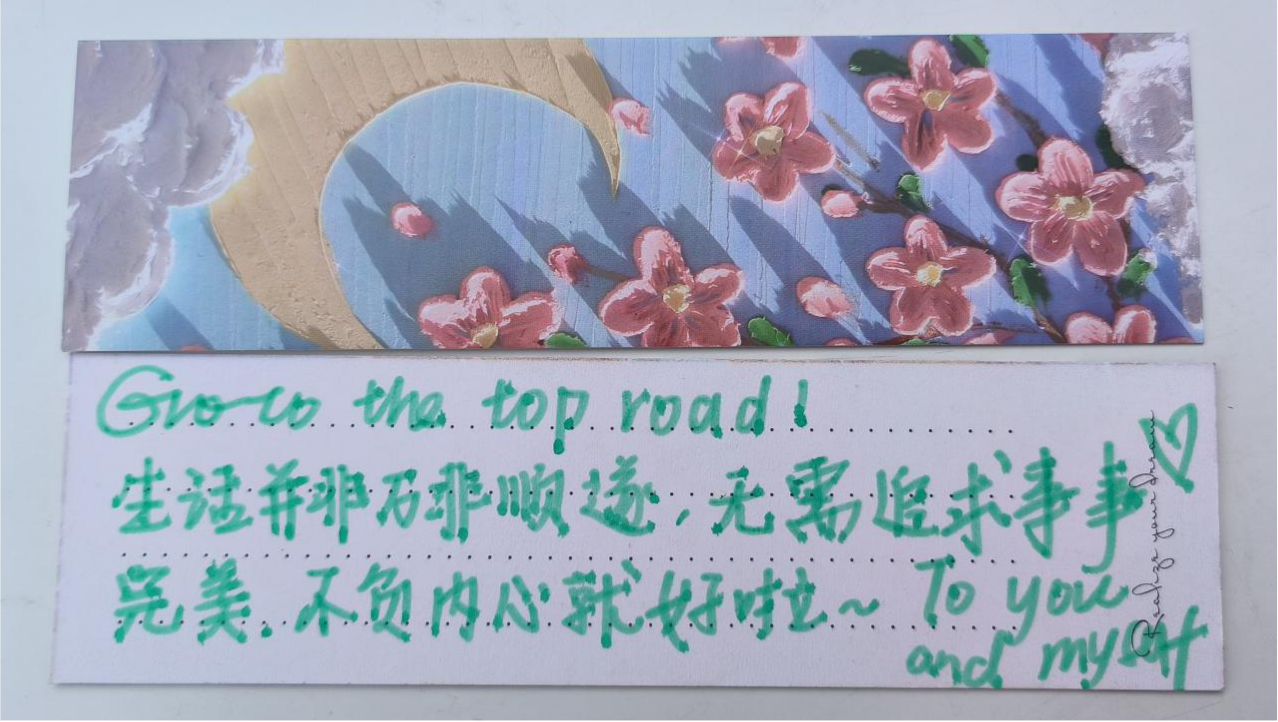 the top road!
生活并非万非顺遂，无需追求事事
完美.不负内心就好啦~ To you
and myself
Realize your dream